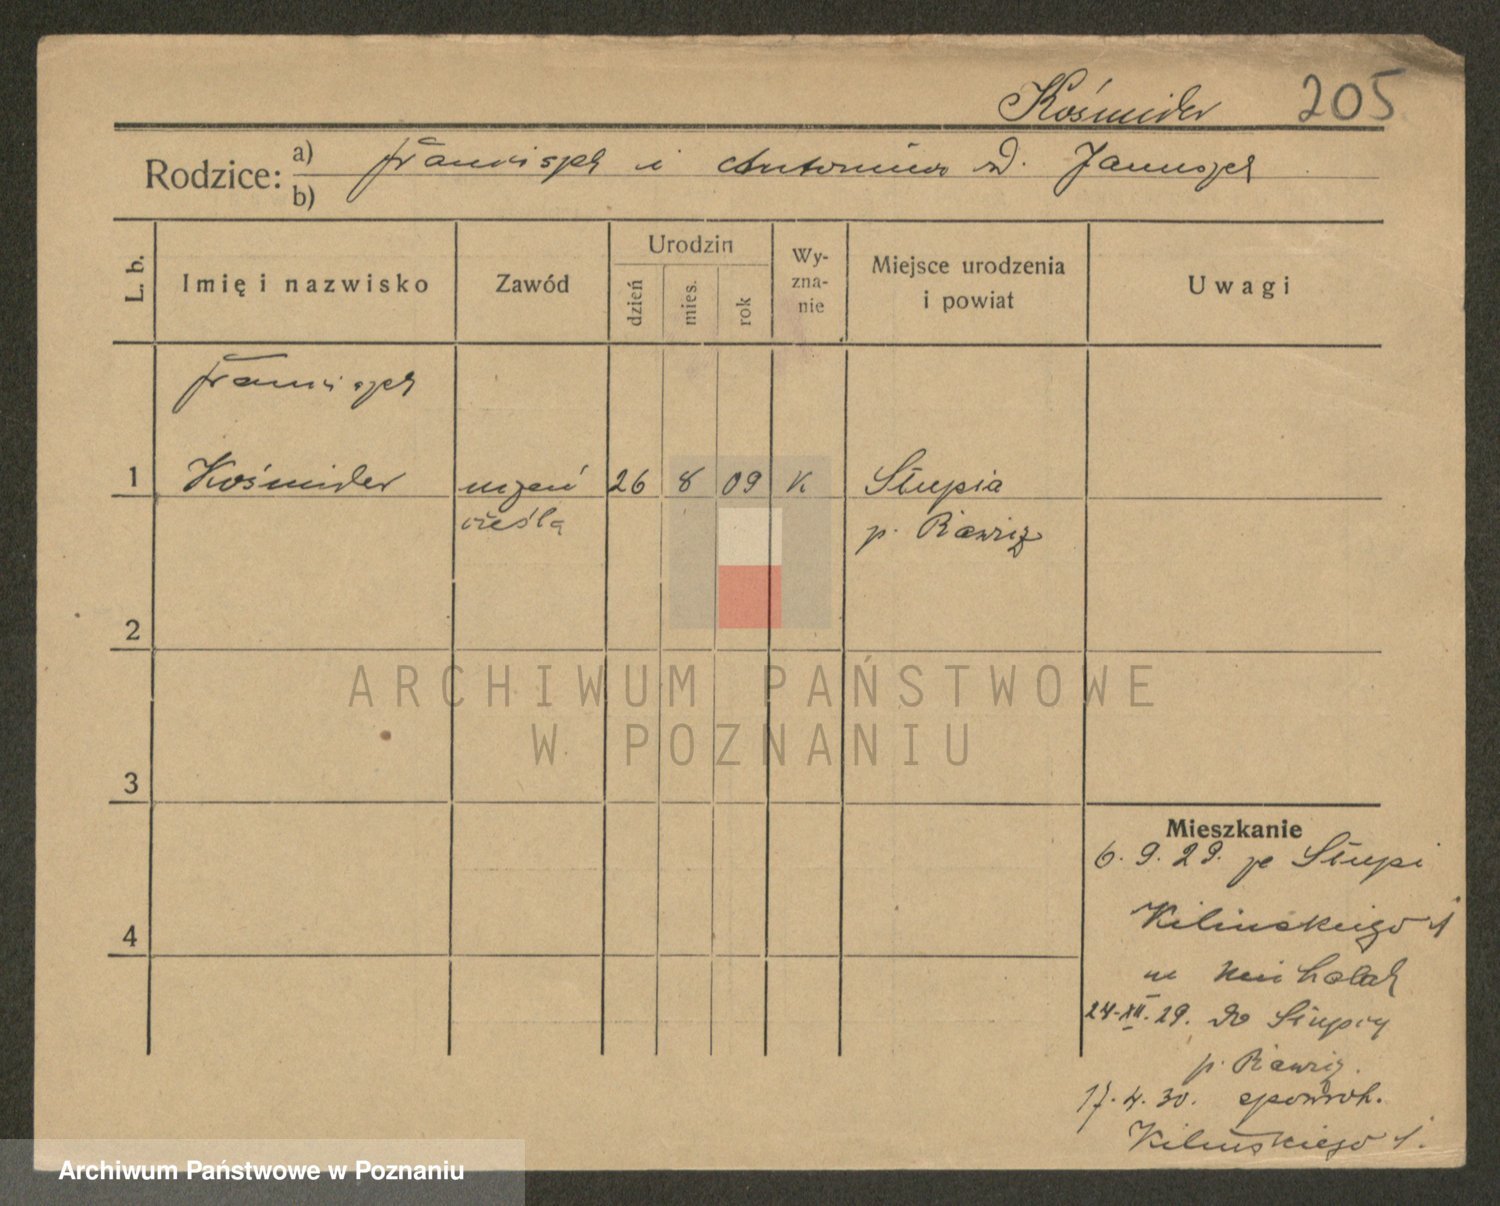 Kośmider 205
Rodzice: a) Franciszek i Antonina z d. Januszek
b)
L. b.
Imię i nazwisko
Zawód
Urodzin
dzień
mies.
rok
Wy-
zna-
nie
Miejsce urodzenia
i powiat
Uwagi
Franciszek
1 Kośmider uczeń 26 8 09 K Słupia
cieśla p. Rawicz
2
3
4
Mieszkanie
6.9.29. ze Słupi
Kilińskiego 1
u Michalak
24-XII.29. do Słupy
p. Rawicz.
17.4.30. spowrot.
Kilińskiego 1.
ARCHIWUM PAŃSTWOWE
W POZNANIU
Archiwum Państwowe w Poznaniu